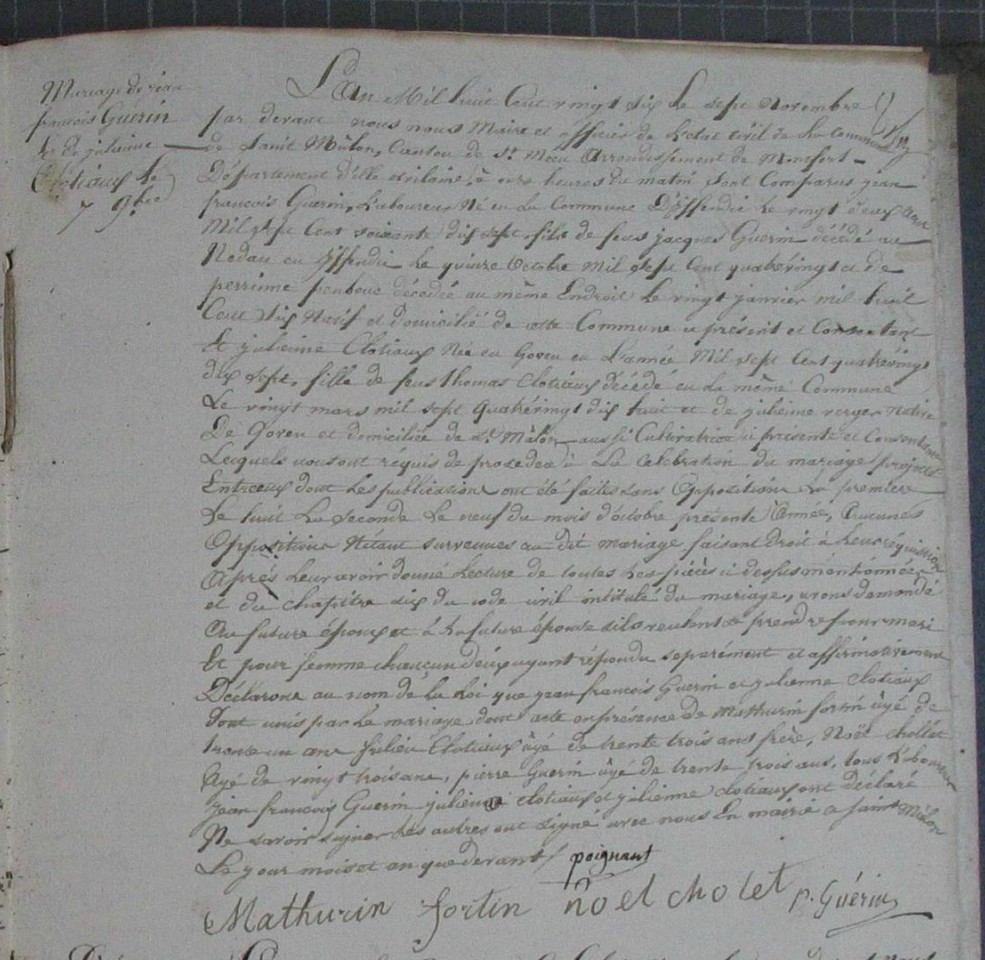 Mariage de jean
francois Guerin
& de julienne
Clotiaux le
7 9bre
L'an Mil huit Cent vingt six le sept Novembre
par devant nous nous Maire et officier de L'etat civil de La Commune
de Saint Mâlon, Canton de St Méen Arrondissement de Monfort
Département d'ille et vilaine, à onze heures du matin sont Comparus jean
francois Guerin, Laboureur Né en La Commune D'iffendic Le vingt deux
Mil sept Cent soixante dix sept fils de feus jacques Guerin décédé au
Nedau en iffendic Le quinze Octobre Mil sept Cent quatrévingt et de
perrinne décédée au même Endroit Le vingt janvier mil huit
Cent dix Neuf et domicilié de cette Commune a présent et Consentant
Et julienne Clotiaux Née en Goven en L'année Mil sept Cent quatrévingt
dix sept, fille de feus thomas Clotiaux décédé en La même Commune
Le vingt mars mil sept quatrévingt dix huit et de julienne verger Native
De Goven et domiciliée de St Mâlon aussi Cultivatrice ici présente et Consentante
Lesquels nous ont réquis de proseder à La celebration du mariage projeté
Entr'eux dont Les publications ont été faites sans Opposition La premiere
Le huit La Seconde Le neuf du mois d'octobre présente Année, Aucunes
Oppositions N'etant survenues au dit mariage faisant Droit à Leur réquisition
Aprés Leur avoir donné Lecture de toutes Les piéces ci dessus mentionnées
et du chapitre six du code civil intitulé du mariage, avons demandé
Au future époux et à La future épouse s'ils veulent se prendre pour mari
Et pour femme chaucun d'eux ayant répondu separément et affirmativement
Déclarons au nom de La Loi que jean francois Guerin et julienne Clotiaux
Sont unis par Le mariage dont acte en présence de Mathurin fortin âgé de
trente un ans Julien Clotiaux âgé de trente trois ans frère, Noël chollet
Agé de vingt trois ans, pierre Guerin âgé de trente trois ans, tous Laboureurs
Jean francois Guerin julienne Clotiaux et julienne Clotiaux ont déclaré
Ne savoir signer Les autres ont signé avec nous En mairie a Saint Mâlon
Le jour mois et an que devant /. poignant
Mathurin fortin noel cholet p. Guérin